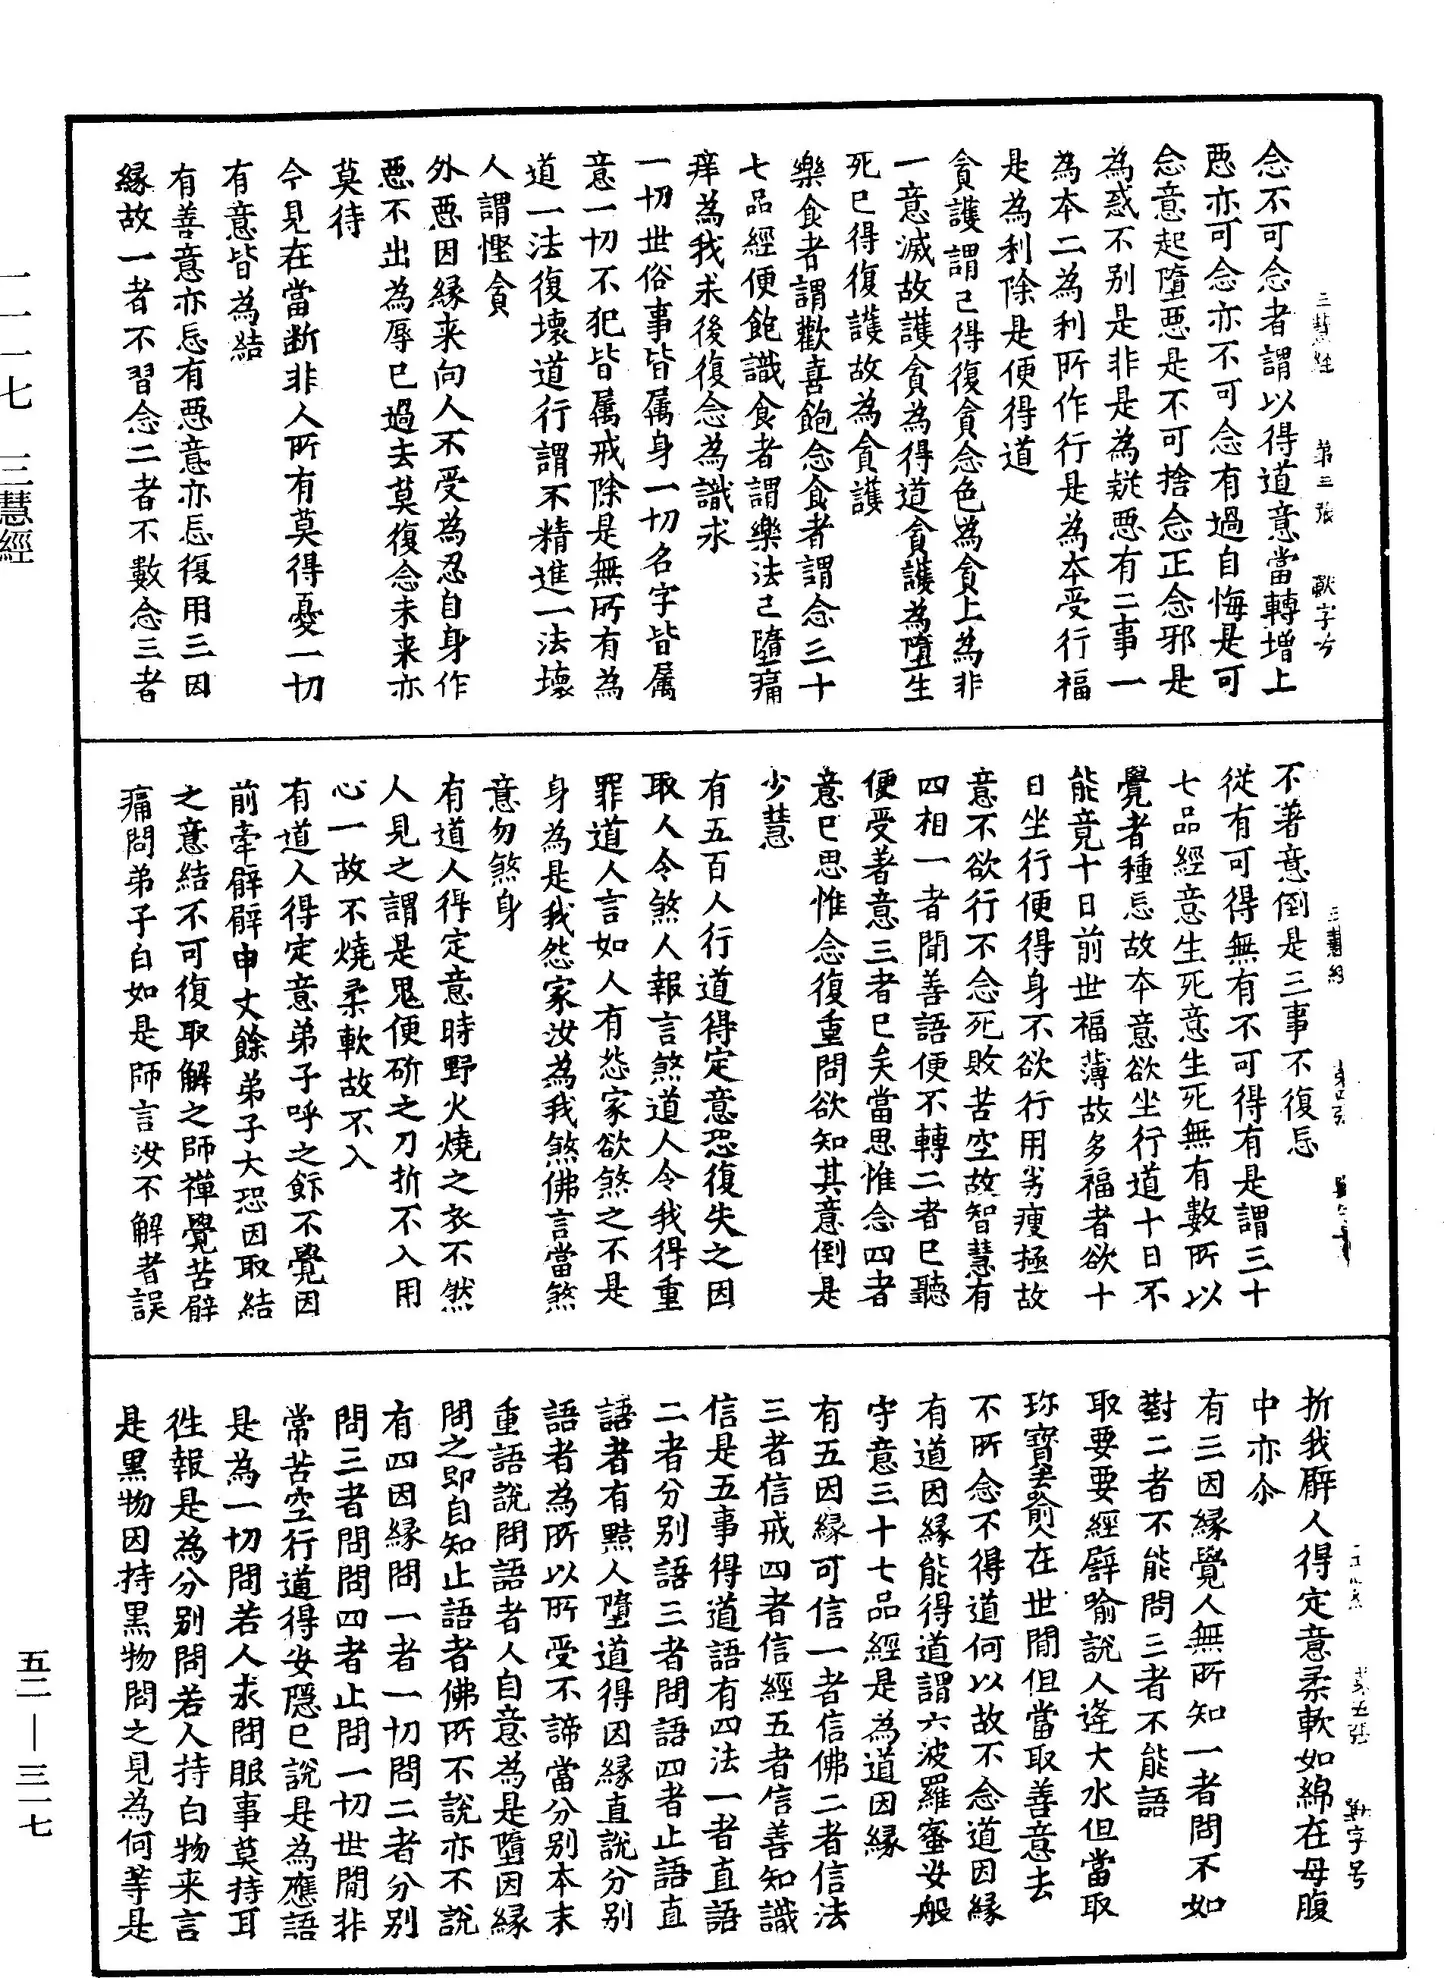 一一一七 三慧經
三慧經 第三張
念不可念者謂以得道意當轉增上
惡亦可念亦不可念有過自悔是可
念意起墮惡是不可捨念正念邪是
為惑不別是非是為疑惡有二事一
為本二為利所作行是為本受行福
是為利除是便得道
貪護謂已得復貪念色為貪上為非
一意滅故護貪為得道貪護為墮生
死已得復護故為貪護
樂食者謂歡喜飽念食者謂念三十
七品經便飽識食者謂樂法已墮痛
痒為我求後復念為識求
一切世俗事皆属身一切名字皆属
意一切不犯皆属戒除是無所有為
道一法復壞道行謂不精進一法壞
人謂慳貪
外惡因緣来向人不受為忍自身作
惡不出為辱已過去莫復念未来亦
莫待
今見在當断非人所有莫得憂一切
有意皆為結
有善意亦忘有惡意亦忘復用三因
緣故一者不習念二者不數念三者
三慧經 第四張
不著意倒是三事不復忘
從有可得無有不可得有是謂三十
七品經意生死意生死無有數所以
覺者種忘故本意欲坐行道十日不
能竟十日前世福薄故多福者欲十
日坐行便得身不欲行用劣瘦極故
意不欲行不念死敗苦空故智慧有
四相一者聞善語便不轉二者已聽
便受著意三者已矣當思惟念四者
意已思惟念復重問欲知其意倒是
少慧
有五百人行道得定意恐復失之因
取人令煞人報言煞道人令我得重
罪道人言如人有怨家欲煞之不是
身為是我怨家汝為我煞佛言當煞
意勿煞身
有道人得定意時野火燒之衣不然
人見之謂是鬼便斫之刀折不入用
心一故不燒柔軟故不入
有道人得定意弟子呼之飯不覺因
前牽臂臂申丈餘弟子大恐因取結
之意結不可復取解之師禪覺苦臂
痛問弟子白如是師言汝不解者誤
第五張 字号
折我臂人得定意柔軟如綿在母腹
中亦尒
有三因緣覺人無所知一者問不如
對二者不能問三者不能語
取要要經譬喻說人逢大水但當取
珎寶丟前人在世間但當取善意去
不所念不得道何以故不念道因緣
有道因緣能得道謂六波羅蜜安般
守意三十七品經是為道因緣
有五因緣可信一者信佛二者信法
三者信戒四者信經五者信善知識
信是五事得道語有四法一者直語
二者分别語三者問語四者止語直
語者有黠人墮道得因緣直說分别
語者為所以所受不諦當分别本末
重語說問語者人自意為是墮因緣
問之即自知止語者佛所不說亦不說
有四因緣問一者一切問二者分别
問三者問問四者止問一切世間非
常苦空行道得安隱已說是為應語
是為一切問若人求問眼事莫持耳
徃報是為分别問若人持白物来言
是黑物因持黑物問之見為何等是
五二—三一七